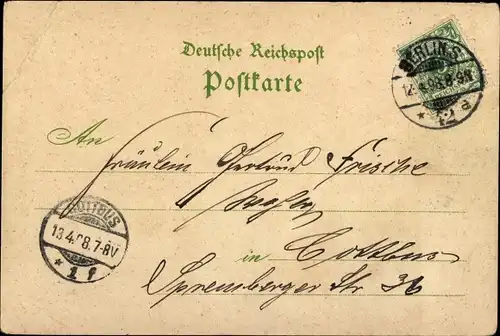 Deutsche Reichspost
Postkarte
BERLIN S
12.4.98.8-9N
* 42 a
An
Fräulein Gertrud Frische
COTTBUS
13.4.98.7-8V
* 1 f
in Cottbus
Spremberger Str 36